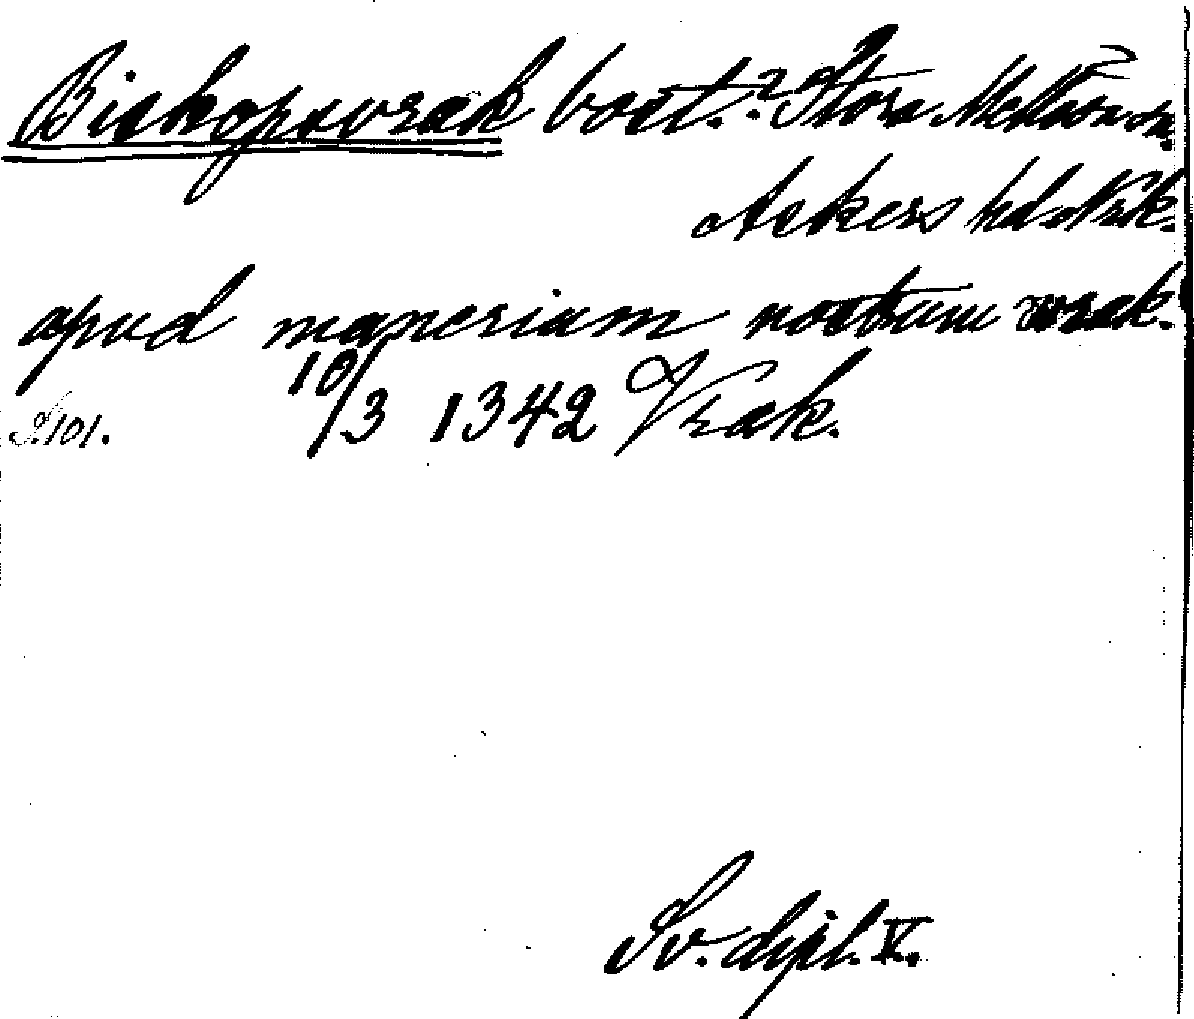 Biskopsvrak bost.? Stora Mellösa sn.
Askers hd. Nrk.
apud manerium nostrum wrak.
10/3 1342 Vrak.
S. 101.
Sv. dipl. V.